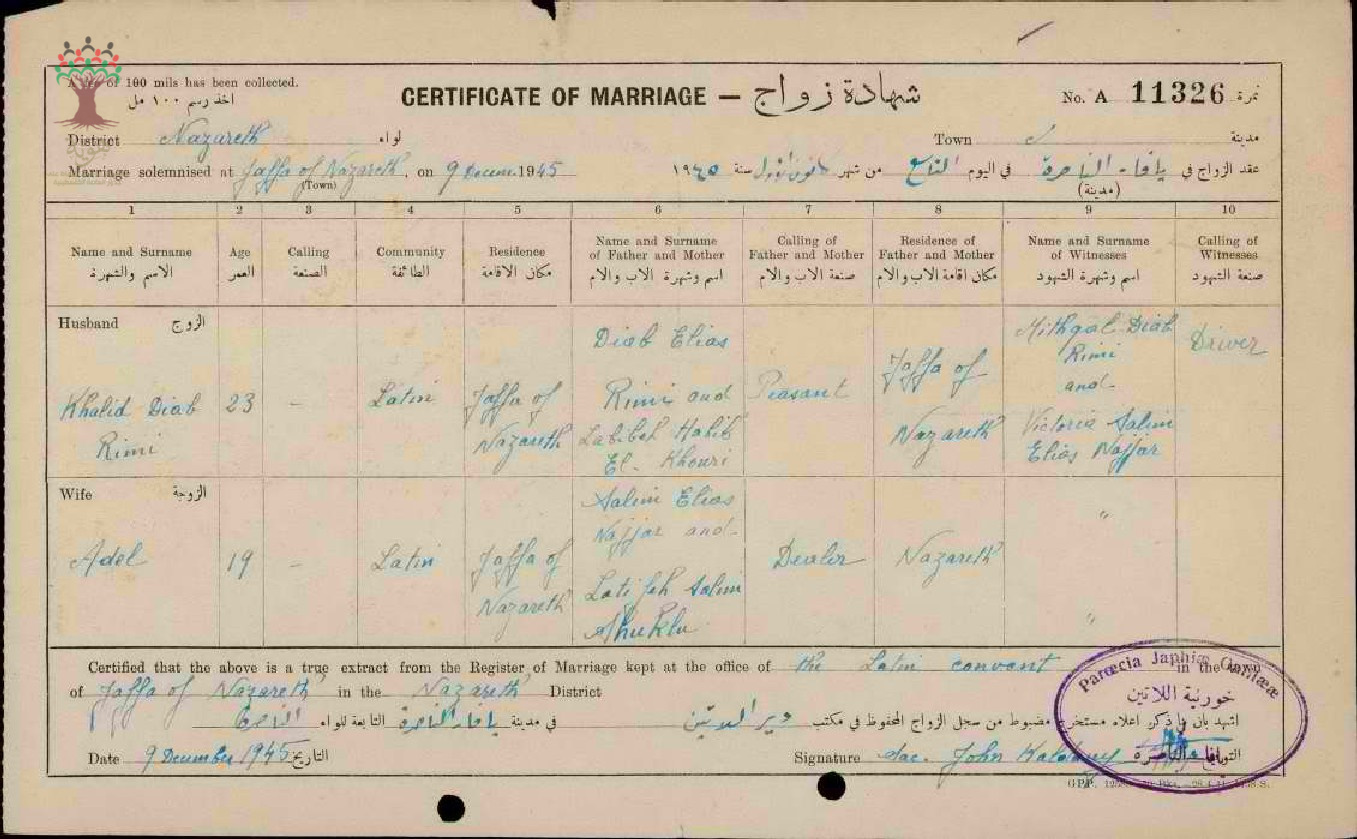 of 100 mils has been collected.
اخذ رسم ١٠٠ مل
CERTIFICATE OF MARRIAGE — شهادة زواج
No. A 11326 نمرة
District Nazareth لواء
Town مدينة
Marriage solemnised at Jaffa of Nazareth, on 9 Decem. 1945
(Town)
عقد الزواج في يافا الناصرة في اليوم التاسع من شهر كانون اول سنة ١٩٤٥
(مدينة)
1 2 3 4 5 6 7 8 9 10
Name and Surname
الاسم والشهرة
Age
العمر
Calling
الصنعة
Community
الطائفة
Residence
مكان الاقامة
Name and Surname
of Father and Mother
اسم وشهرة الاب والام
Calling of
Father and Mother
صنعة الاب والام
Residence of
Father and Mother
مكان اقامة الاب والام
Name and Surname
of Witnesses
اسم وشهرة الشهود
Calling of
Witnesses
صنعة الشهود
Husband الزوج
Khalid Diab
Rimi
23
-
Latin
Jaffa of
Nazareth
Diab Elias
Rimi and
Labibeh Habib
El. Khouri
Peasant
Jaffa of
Nazareth
Mithqal Diab
Rimi
and
Victoria Salim
Elias Najjar
Driver
Wife الزوجة
Adel
19
-
Latin
Jaffa of
Nazareth
Salim Elias
Najjar and
Latifeh Salim
Dealer
Nazareth
"
"
Certified that the above is a true extract from the Register of Marriage kept at the office of the Latin convent in the
of Jaffa of Nazareth in the Nazareth District
اشهد بان ما ذكر اعلاه مستخرج مضبوط من سجل الزواج المحفوظ في مكتب دير اللاتين في مدينة يافا الناصرة التابعة للواء الناصرة
Date 9 December 1945 التاريخ
Signature Sac. John
Parœcia Japhiæ
خورنية اللاتين